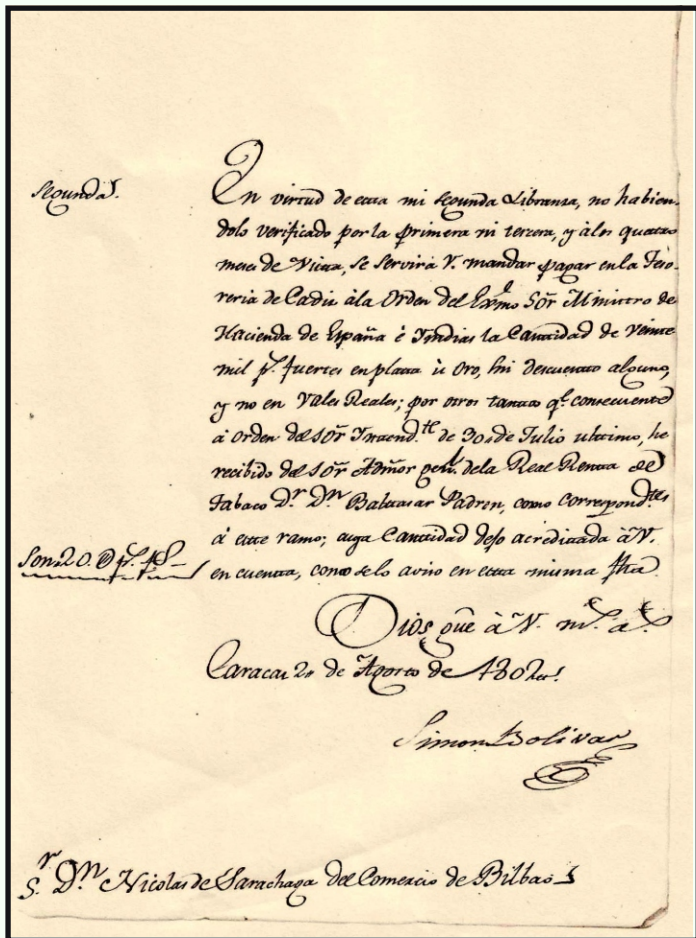 Segunda.
En virtud de esta mi segunda Libranza, no habien-
dolo verificado por la primera ni tercera, y à los quatro
meses de Vista, se servirá V. mandar pagar en la Teso-
reria de Cadiz à la Orden del Exmo Sõr Ministro de
Hacienda de España é Yndias la Cantidad de veinte
mil ps. fuertes en plata ú Oro, sin descuento alguno,
y no en Vales Reales; por otros tantos qe. consecuente
à Orden del Sõr Yntendte. de 30 de Julio ultimo, he
recibido del Sõr Admõr genl. de la Real Renta del
Tabaco Dr. Dn. Baltasar Padron, como correspondtes.
à este ramo; cuya Cantidad dejo acreditada à V.
Son 20 ps. fs.
en cuenta, como se lo aviso en esta misma fha.
Dios gũe à V. ms. as.
Caracas 2 de Agosto de 1802.
Simon Bolivar
Sr. Dn. Nicolas de Sarachaga del Comercio de Bilbao